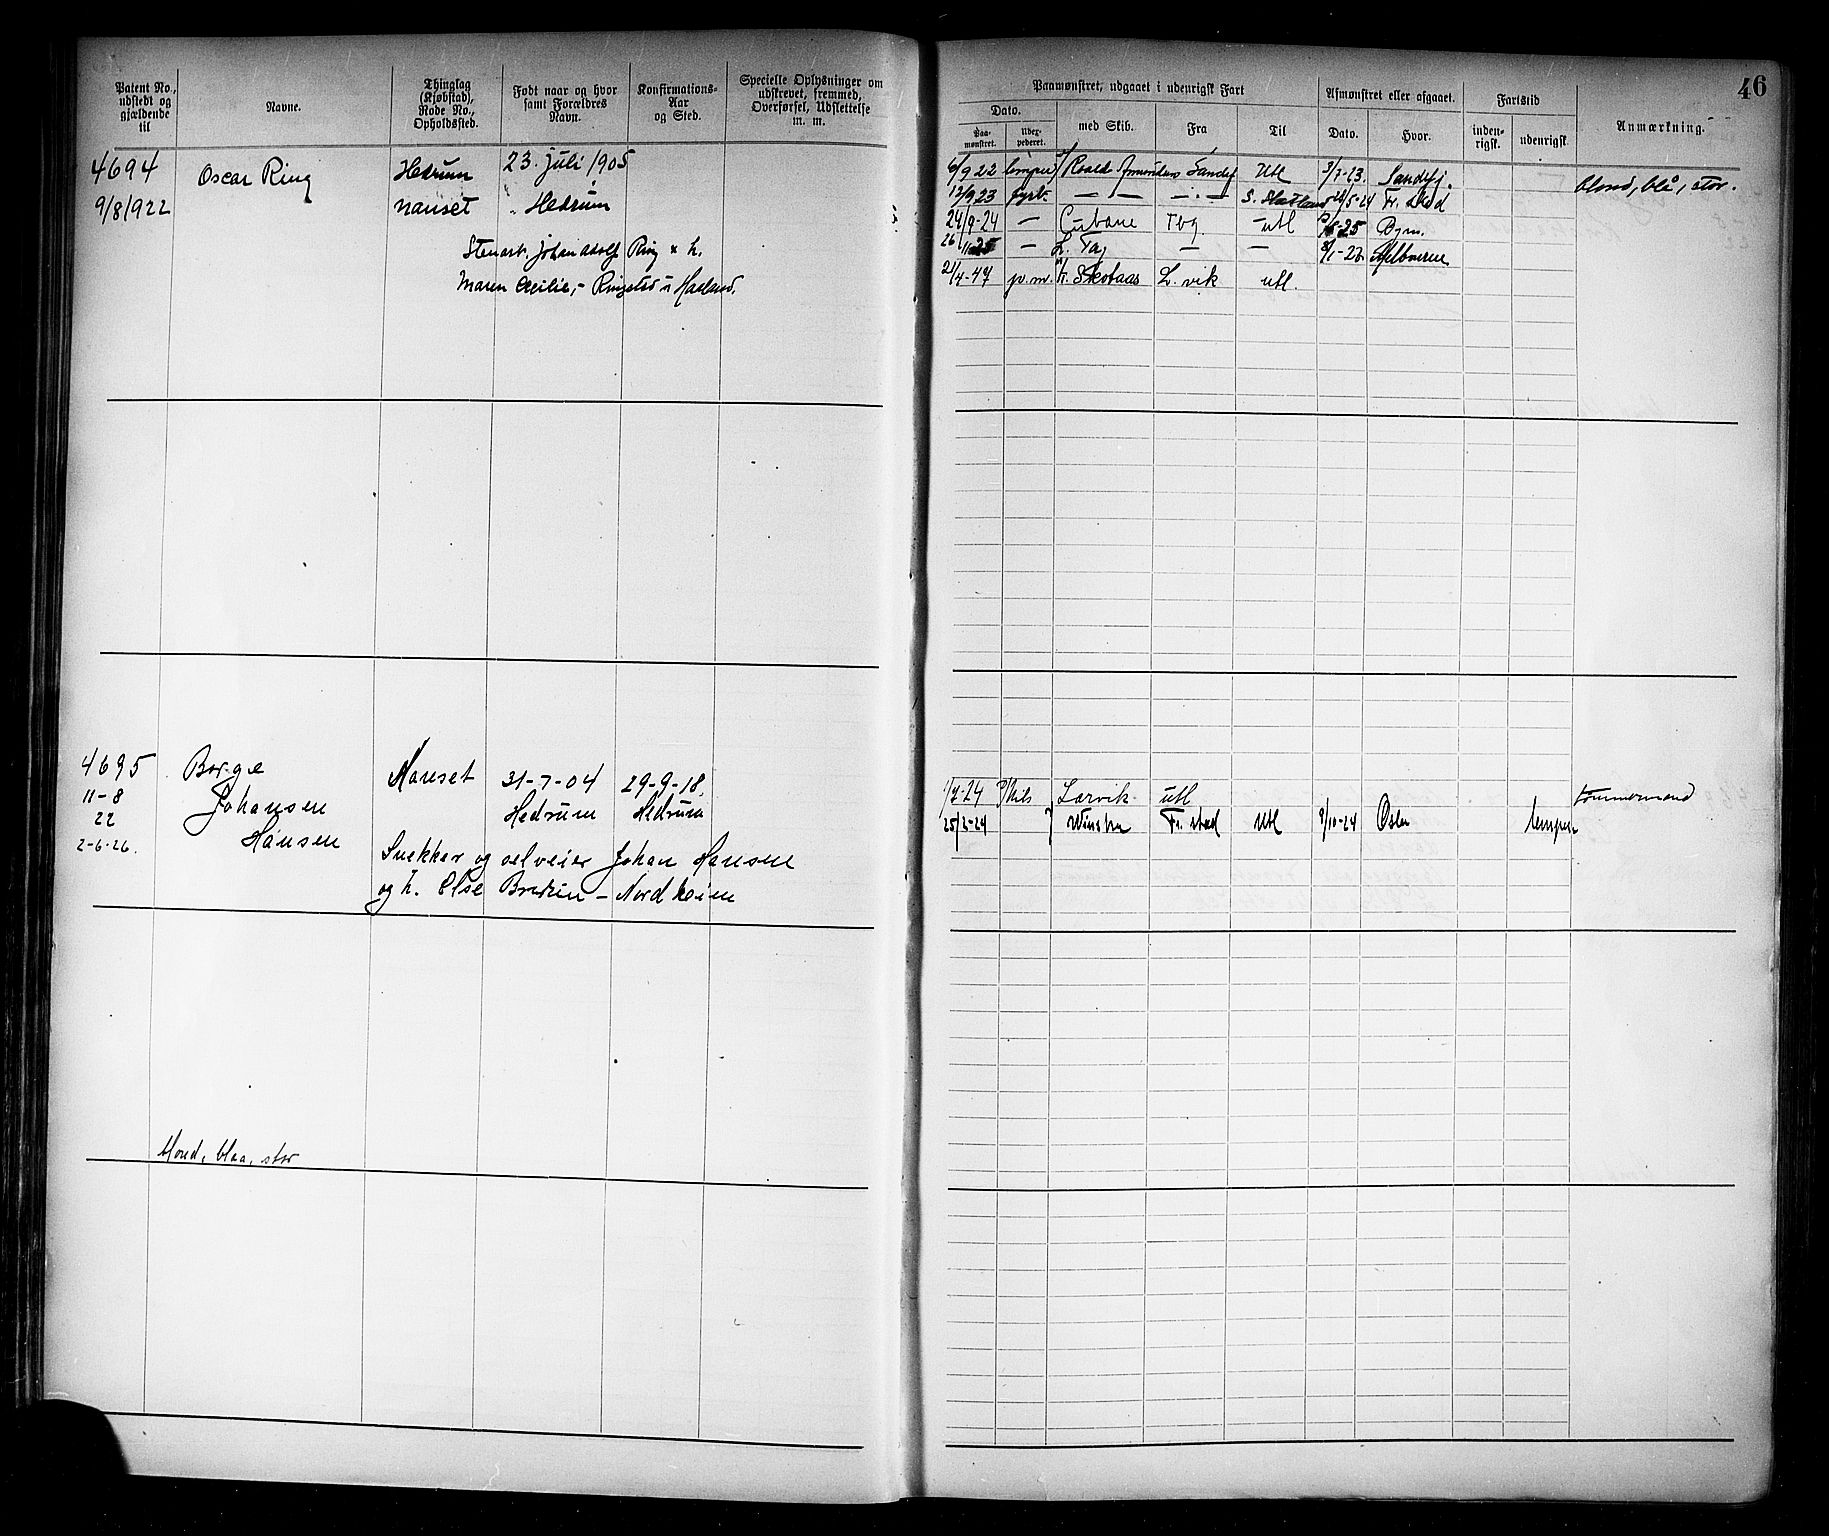 Patent No., udstedt og gjældende til
Navne.
Thinglag (Kjøbstad), Rode No., Opholdssted.
Født naar og hvor samt Forældres Navn.
Konfirmations-Aar og Sted.
Specielle Oplysninger om udskrevet, fremmed, Overførsel, Udslettelse m. m.
4694
9/8 1922
Oscar Ring
Hedrum
Nanset
23. juli 1905
" Hedrum
Johan Adolf Ring & h.
Maren Cecilie,
4695
11-8
22
2-6-26.
Borge
Johansen
Hansen
Nanset
31-7-04
Hedrum
29-9-18,
Hedrum
Snekker og selveier Johan Hansen
og h. Else - Nordheim
blond, blaa, stor
46
Paamønstret, udgaaet i udenrigsk Fart
Afmønstret eller afgaaet.
Fartstid
Anmærkning.
Dato.
Paa-mønstret.
Udex-pederet.
med Skib.
Fra
Til
Dato.
Hvor.
inden-rigsk.
udenrigsk.
6/9 22 Roald Amundsen Sandefj Utl 3/7-23. Sandefj. blond, blå, stor.
12/9 23 fyrb. — — — S. Shetland /5-24 Fr. stad
24/9-24 — Cubane Tbg. utl 25
26/11 25 — L. Tag — — /1-27 Melbourne
21/4-47 Skotaas L.vik utl.
1/2-24 Larvik utl tømmermand
25/2-24 Fr. stad Utl 9/10-24 Oslo